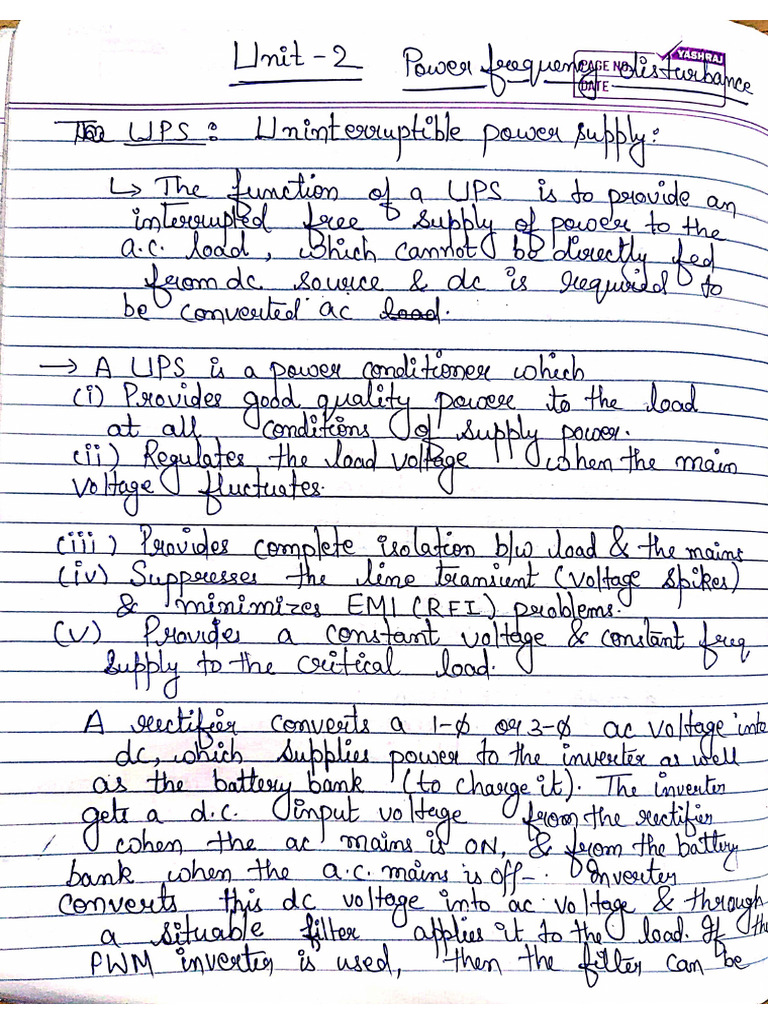 Unit - 2 Power frequency disturbance
YASHRAJ
PAGE NO.
DATE
The UPS : Uninterruptible power supply :
↳ The function of a UPS is to provide an
interrupted free supply of power to the
a.c. load, which cannot be directly fed
from dc source & dc is required to
be converted ac load.
→ A UPS is a power conditioner which
(i) Provides good quality power to the load
at all conditions of supply power.
(ii) Regulates the load voltage when the main
voltage fluctuates.
(iii) Provides complete isolation b/w load & the mains
(iv) Suppresses the line transient (voltage spikes)
& minimizes EMI (RFI) problems.
(v) Provides a constant voltage & constant freq
supply to the critical load.
A rectifier converts a 1-ϕ or 3-ϕ ac voltage into
dc, which supplies power to the inverter as well
as the battery bank (to charge it). The inverter
gets a d.c. input voltage from the rectifier
when the ac mains is ON, & from the battery
bank when the a.c. mains is off-. Inverter
converts this dc voltage into ac voltage & through
a situable filter applies it to the load. If the
PWM inverter is used, then the filter can be